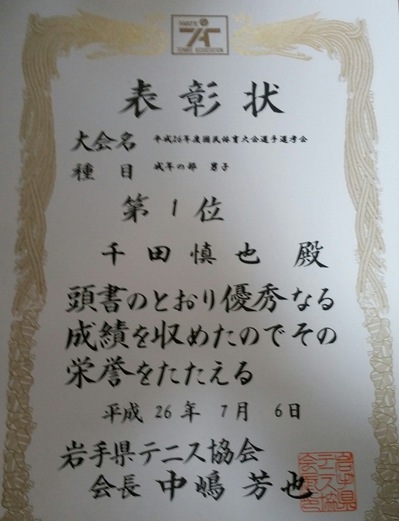 IWATE
TENNIS ASSOCIATION
表彰状
大会名 平成26年度国民体育大会選手選考会
種目 成年の部 男子
第1位
千田慎也 殿
頭書のとおり優秀なる
成績を収めたのでその
栄誉をたたえる
平成26年7月6日
岩手県テニス協会
会長 中嶋芳也